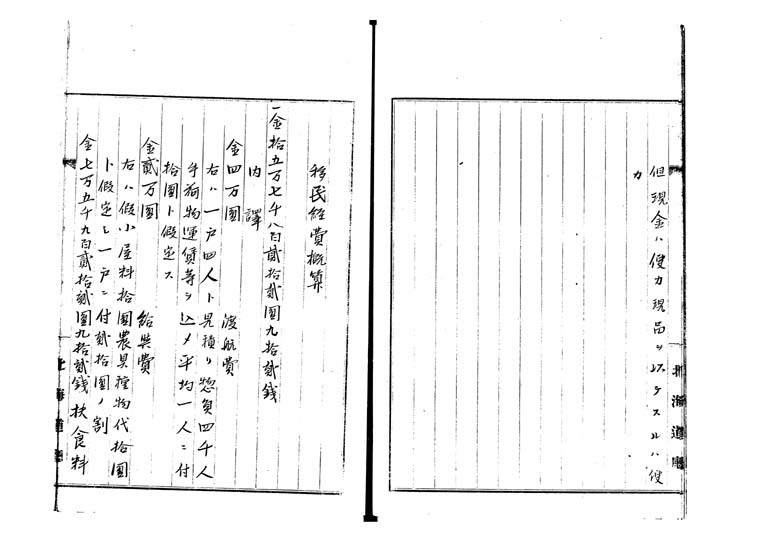 但現金ハ便カ現品ヲ以テスルハ便
カ
北海道廳
移民経費概算
一金拾五万七千八百貳拾貳圓九拾貳銭
内譯
金四万圓 渡航費
右ハ一戸四人ト見積リ惣員四千人
手荷物運賃等ヲ込メ平均一人ニ付
拾圓ト假定ス
金貳万圓 給與費
右ハ假小屋料拾圓農具種物代拾圓
ト假定シ一戸ニ付貳拾圓ノ割
金七万五千九百貳拾貳圓九拾貳銭 扶食料
北海道廳